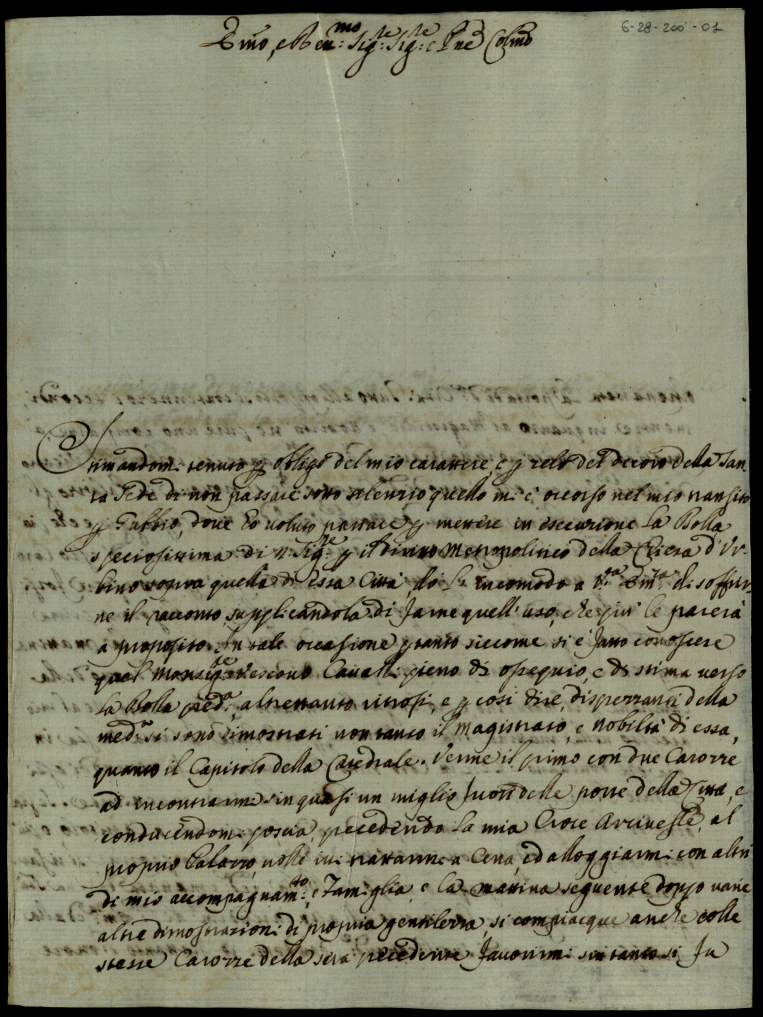 6-28-200-01
Emo, e Ren:mo Sig:re Sig:re e Pne Colmo
Stimandomi tenuto p obligo del mio carattere, e p zelo del decoro della San-
ta Sede di non passare sotto silenzio quello mi è occorso nel mio transito
p Gubbio, dove ho voluto passare p mettere in esecuzione la Bolla
speciosissima di N. Sig:re p il diritto Metropolitico della Chiesa d'Ur-
bino sopra quella di essa Città do l'incomodo a V:ra Em:za di soffrir-
ne il racconto supplicandola di farne quell'uso, che più le parerà
a proposito. In tale occasione quanto siccome si è fatto conoscere
quel Monsig:re Vescovo Cavalli pieno di ossequio, e di stima verso
la Bolla pred:a, altrettanto ritrosi, e p così dire, disprezzanti della
med:a si sono dimostrati non tanto il Magistrato, e Nobiltà di essa,
quanto il Capitolo della Catedrale. Venne il primo con due Carozze
ad incontrarmi sin quasi un miglio fuori delle porte della Città, e
conducendomi poscia, precedendo la mia Croce Arcivesle, al
proprio Palazzo, volle ivi trattarmi a Cena, ed alloggiarmi con altri
di mio accompagnam:to, e Famiglia, e la mattina seguente doppo varie
altre dimostrazioni di propria gentilezza, si compiacque anche colle
stesse Carozze della sera precedente favorirmi sin tanto si fu